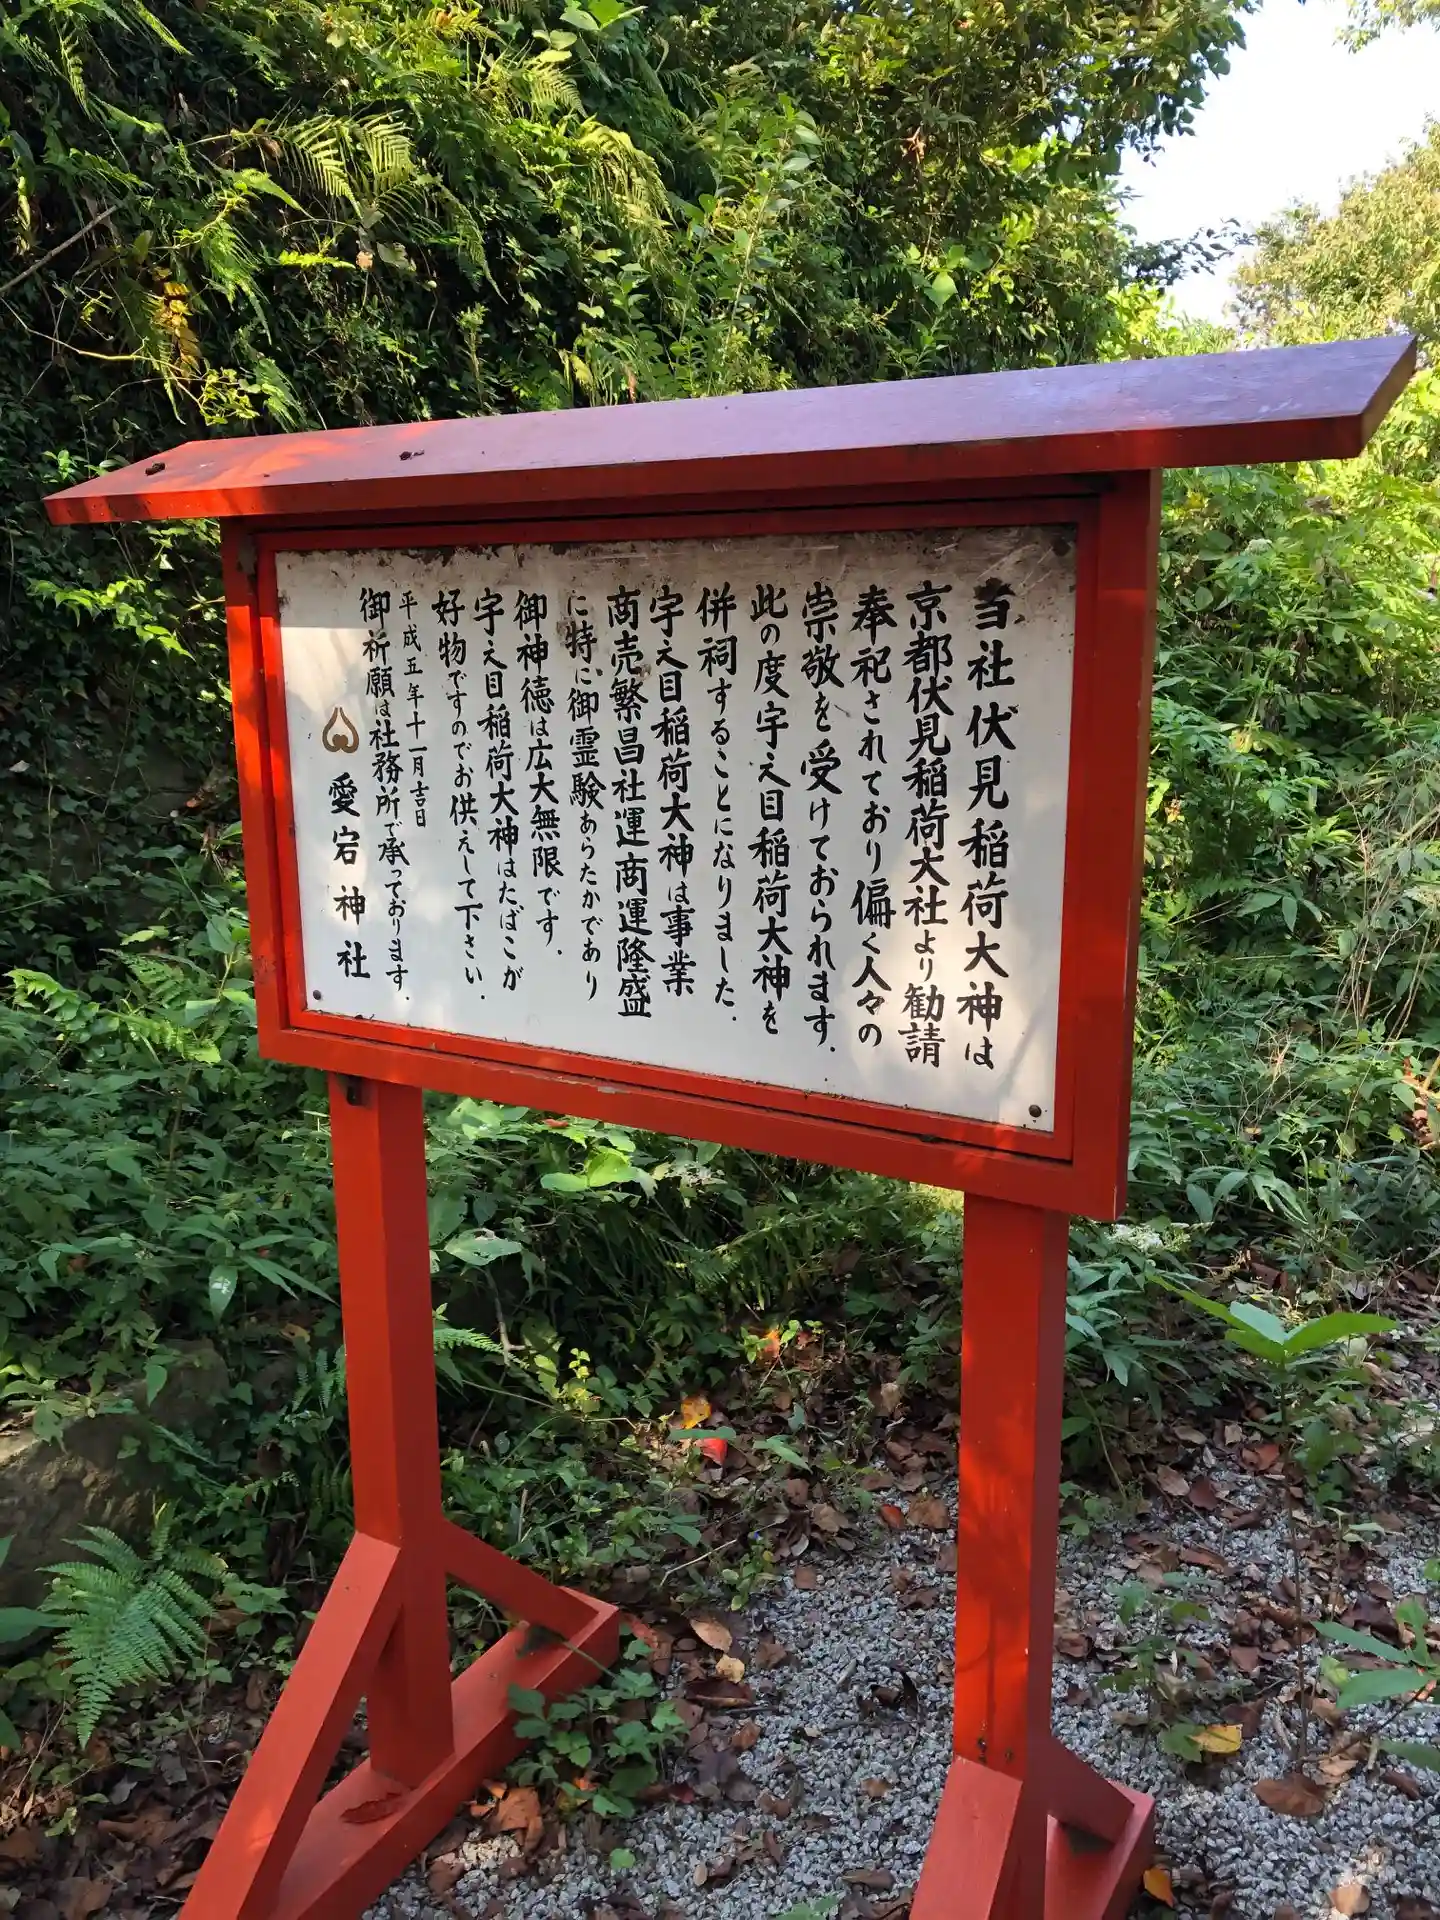 当社伏見稲荷大神は
京都伏見稲荷大社より勧請
奉祀されており偏く人々の
崇敬を受けておられます.
此の度宇え目稲荷大神を
併祠することになりました.
宇え目稲荷大神は事業
商売繁昌社運商運隆盛
に特に御霊験あらたかであり
御神徳は広大無限です.
宇え目稲荷大神はたばこが
好物ですのでお供えして下さい.
平成五年十一月吉日
御祈願は社務所で承っております.
愛宕神社